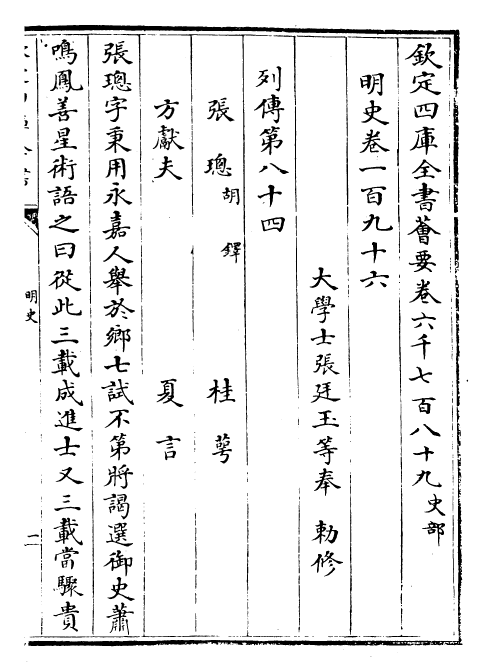 欽定四庫全書薈要卷六千七百八十九 史部
明史卷一百九十六
大學士張廷玉等奉 勅修
列傳第八十四
張璁 胡鐸 桂萼
方獻夫 夏言
張璁字秉用永嘉人舉於鄉七試不第將謁選御史蕭
鳴鳳善星術語之曰從此三載成進士又三載當驟貴
明史
一